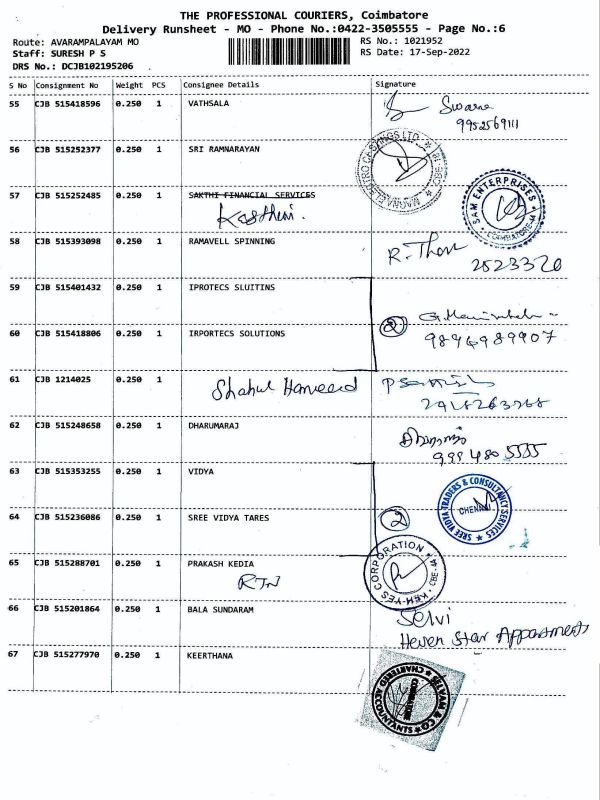 THE PROFESSIONAL COURIERS, Coimbatore
Delivery Runsheet - MO - Phone No.:0422-3505555 - Page No.:6
Route: AVARAMPALAYAM MO RS No.: 1021952
Staff: SURESH P S RS Date: 17-Sep-2022
DRS No.: DCJB102195206
S No Consignment No Weight PCS Consignee Details Signature
55 CJB 515418596 0.250 1 VATHSALA Swarna
9952569111
56 CJB 515252377 0.250 1 SRI RAMNARAYAN
57 CJB 515252485 0.250 1 SAKTHI FINANCIAL SERVICES
SAM ENTERPRISES
COIMBATORE
58 CJB 515393098 0.250 1 RAMAVELL SPINNING
2523320
59 CJB 515401432 0.250 1 IPROTECS SLUITINS
60 CJB 515418806 0.250 1 IRPORTECS SOLUTIONS 2
9894989907
61 CJB 1214025 0.250 1 Shahul Hameed
62 CJB 515248658 0.250 1 DHARUMARAJ
63 CJB 515353255 0.250 1 VIDYA
SREE VIDYA TRADERS & CONSULTANCY SERVICES
CHENNAI
64 CJB 515236086 0.250 1 SREE VIDYA TARES 2
65 CJB 515288701 0.250 1 PRAKASH KEDIA
RTN
KEH-YES CORPORATION
66 CJB 515201864 0.250 1 BALA SUNDARAM Selvi
Heven Star Appartments
67 CJB 515277970 0.250 1 KEERTHANA
CHARTERED ACCOUNTANTS